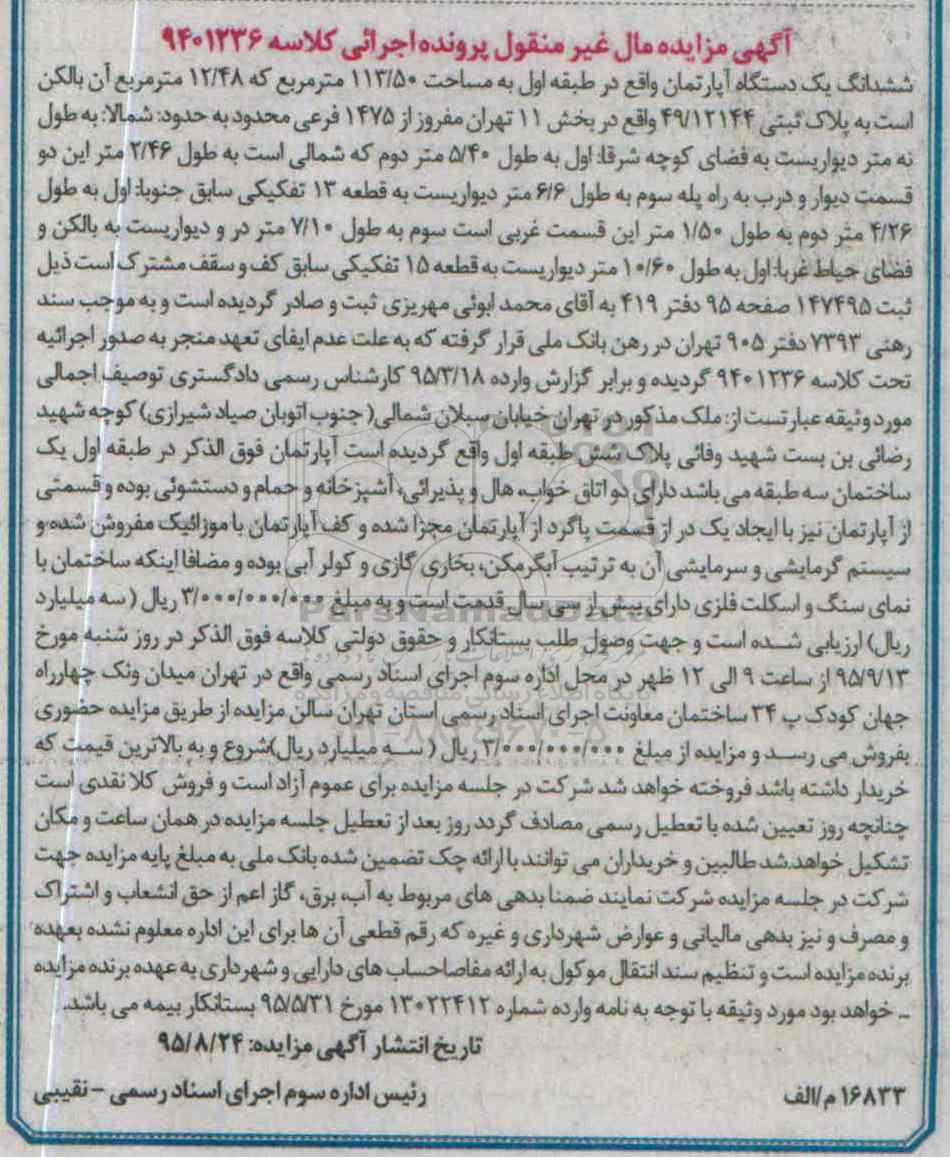 آگهی مزایده مال غیر منقول پرونده اجرائی کلاسه ۹۴۰۱۲۳۶
ششدانگ یک دستگاه آپارتمان واقع در طبقه اول به مساحت ۱۱۳/۵۰ مترمربع که ۱۲/۴۸ مترمربع آن بالکن
است به پلاک ثبتی ۴۹/۱۲۱۴۴ واقع در بخش ۱۱ تهران مفروز از ۱۴۷۵ فرعی محدود به حدود: شمالا: به طول
نه متر دیواریست به فضای کوچه شرقا: اول به طول ۵/۴۰ متر دوم که شمالی است به طول ۲/۴۶ متر این دو
قسمت دیوار و درب به راه پله سوم به طول ۶/۶ متر دیواریست به قطعه ۱۳ تفکیکی سابق جنوبا: اول به طول
۴/۲۶ متر دوم به طول ۱/۵۰ متر این قسمت غربی است سوم به طول ۷/۱۰ متر در و دیواریست به بالکن و
فضای حیاط غربا: اول به طول ۱۰/۶۰ متر دیواریست به قطعه ۱۵ تفکیکی سابق کف و سقف مشترک است ذیل
ثبت ۱۴۷۴۹۵ صفحه ۹۵ دفتر ۴۱۹ به آقای محمد ابوئی مهریزی ثبت و صادر گردیده است و به موجب سند
رهنی ۷۳۹۳ دفتر ۹۰۵ تهران در رهن بانک ملی قرار گرفته که به علت عدم ایفای تعهد منجر به صدور اجرائیه
تحت کلاسه ۹۴۰۱۲۳۶ گردیده و برابر گزارش وارده ۹۵/۳/۱۸ کارشناس رسمی دادگستری توصیف اجمالی
مورد وثیقه عبارتست از: ملک مذکور در تهران خیابان سبلان شمالی( جنوب اتوبان صیاد شیرازی) کوچه شهید
رضائی بن بست شهید وفائی پلاک شش طبقه اول واقع گردیده است آپارتمان فوق الذکر در طبقه اول یک
ساختمان سه طبقه می باشد دارای دو اتاق خواب، هال و پذیرائی، آشپزخانه و حمام و دستشوئی بوده و قسمتی
از آپارتمان نیز با ایجاد یک در از قسمت پاگرد از آپارتمان مجزا شده و کف آپارتمان با موزائیک مفروش شده و
سیستم گرمایشی و سرمایشی آن به ترتیب آبگرمکن، بخاری گازی و کولر آبی بوده و مضافا اینکه ساختمان با
نمای سنگ و اسکلت فلزی دارای بیش از سی سال قدمت است و به مبلغ ۳/۰۰۰/۰۰۰/۰۰۰ ریال ( سه میلیارد
ریال) ارزیابی شده است و جهت وصول طلب بستانکار و حقوق دولتی کلاسه فوق الذکر در روز شنبه مورخ
۹۵/۹/۱۳ از ساعت ۹ الی ۱۲ ظهر در محل اداره سوم اجرای اسناد رسمی واقع در تهران میدان ونک چهارراه
جهان کودک پ ۳۴ ساختمان معاونت اجرای اسناد رسمی استان تهران سالن مزایده از طریق مزایده حضوری
بفروش می رسد و مزایده از مبلغ ۳/۰۰۰/۰۰۰/۰۰۰ ریال ( سه میلیارد ریال)شروع و به بالاترین قیمت که
خریدار داشته باشد فروخته خواهد شد شرکت در جلسه مزایده برای عموم آزاد است و فروش کلا نقدی است
چنانچه روز تعیین شده با تعطیل رسمی مصادف گردد روز بعد از تعطیل جلسه مزایده در همان ساعت و مکان
تشکیل خواهد شد طالبین و خریداران می توانند با ارائه چک تضمین شده بانک ملی به مبلغ پایه مزایده جهت
شرکت در جلسه مزایده شرکت نمایند ضمنا بدهی های مربوط به آب، برق، گاز اعم از حق انشعاب و اشتراک
و مصرف و نیز بدهی مالیاتی و عوارض شهرداری و غیره که رقم قطعی آن ها برای این اداره معلوم نشده بعهده
برنده مزایده است و تنظیم سند انتقال موکول به ارائه مفاصاحساب های دارایی و شهرداری به عهده برنده مزایده
ـ خواهد بود مورد وثیقه با توجه به نامه وارده شماره ۱۳۰۲۲۴۱۲ مورخ ۹۵/۵/۳۱ بستانکار بیمه می باشد.
تاریخ انتشار آگهی مزایده: ۹۵/۸/۲۴
رئیس اداره سوم اجرای اسناد رسمی - نقیبی
۱۶۸۳۳ م/الف
ParsNamadData